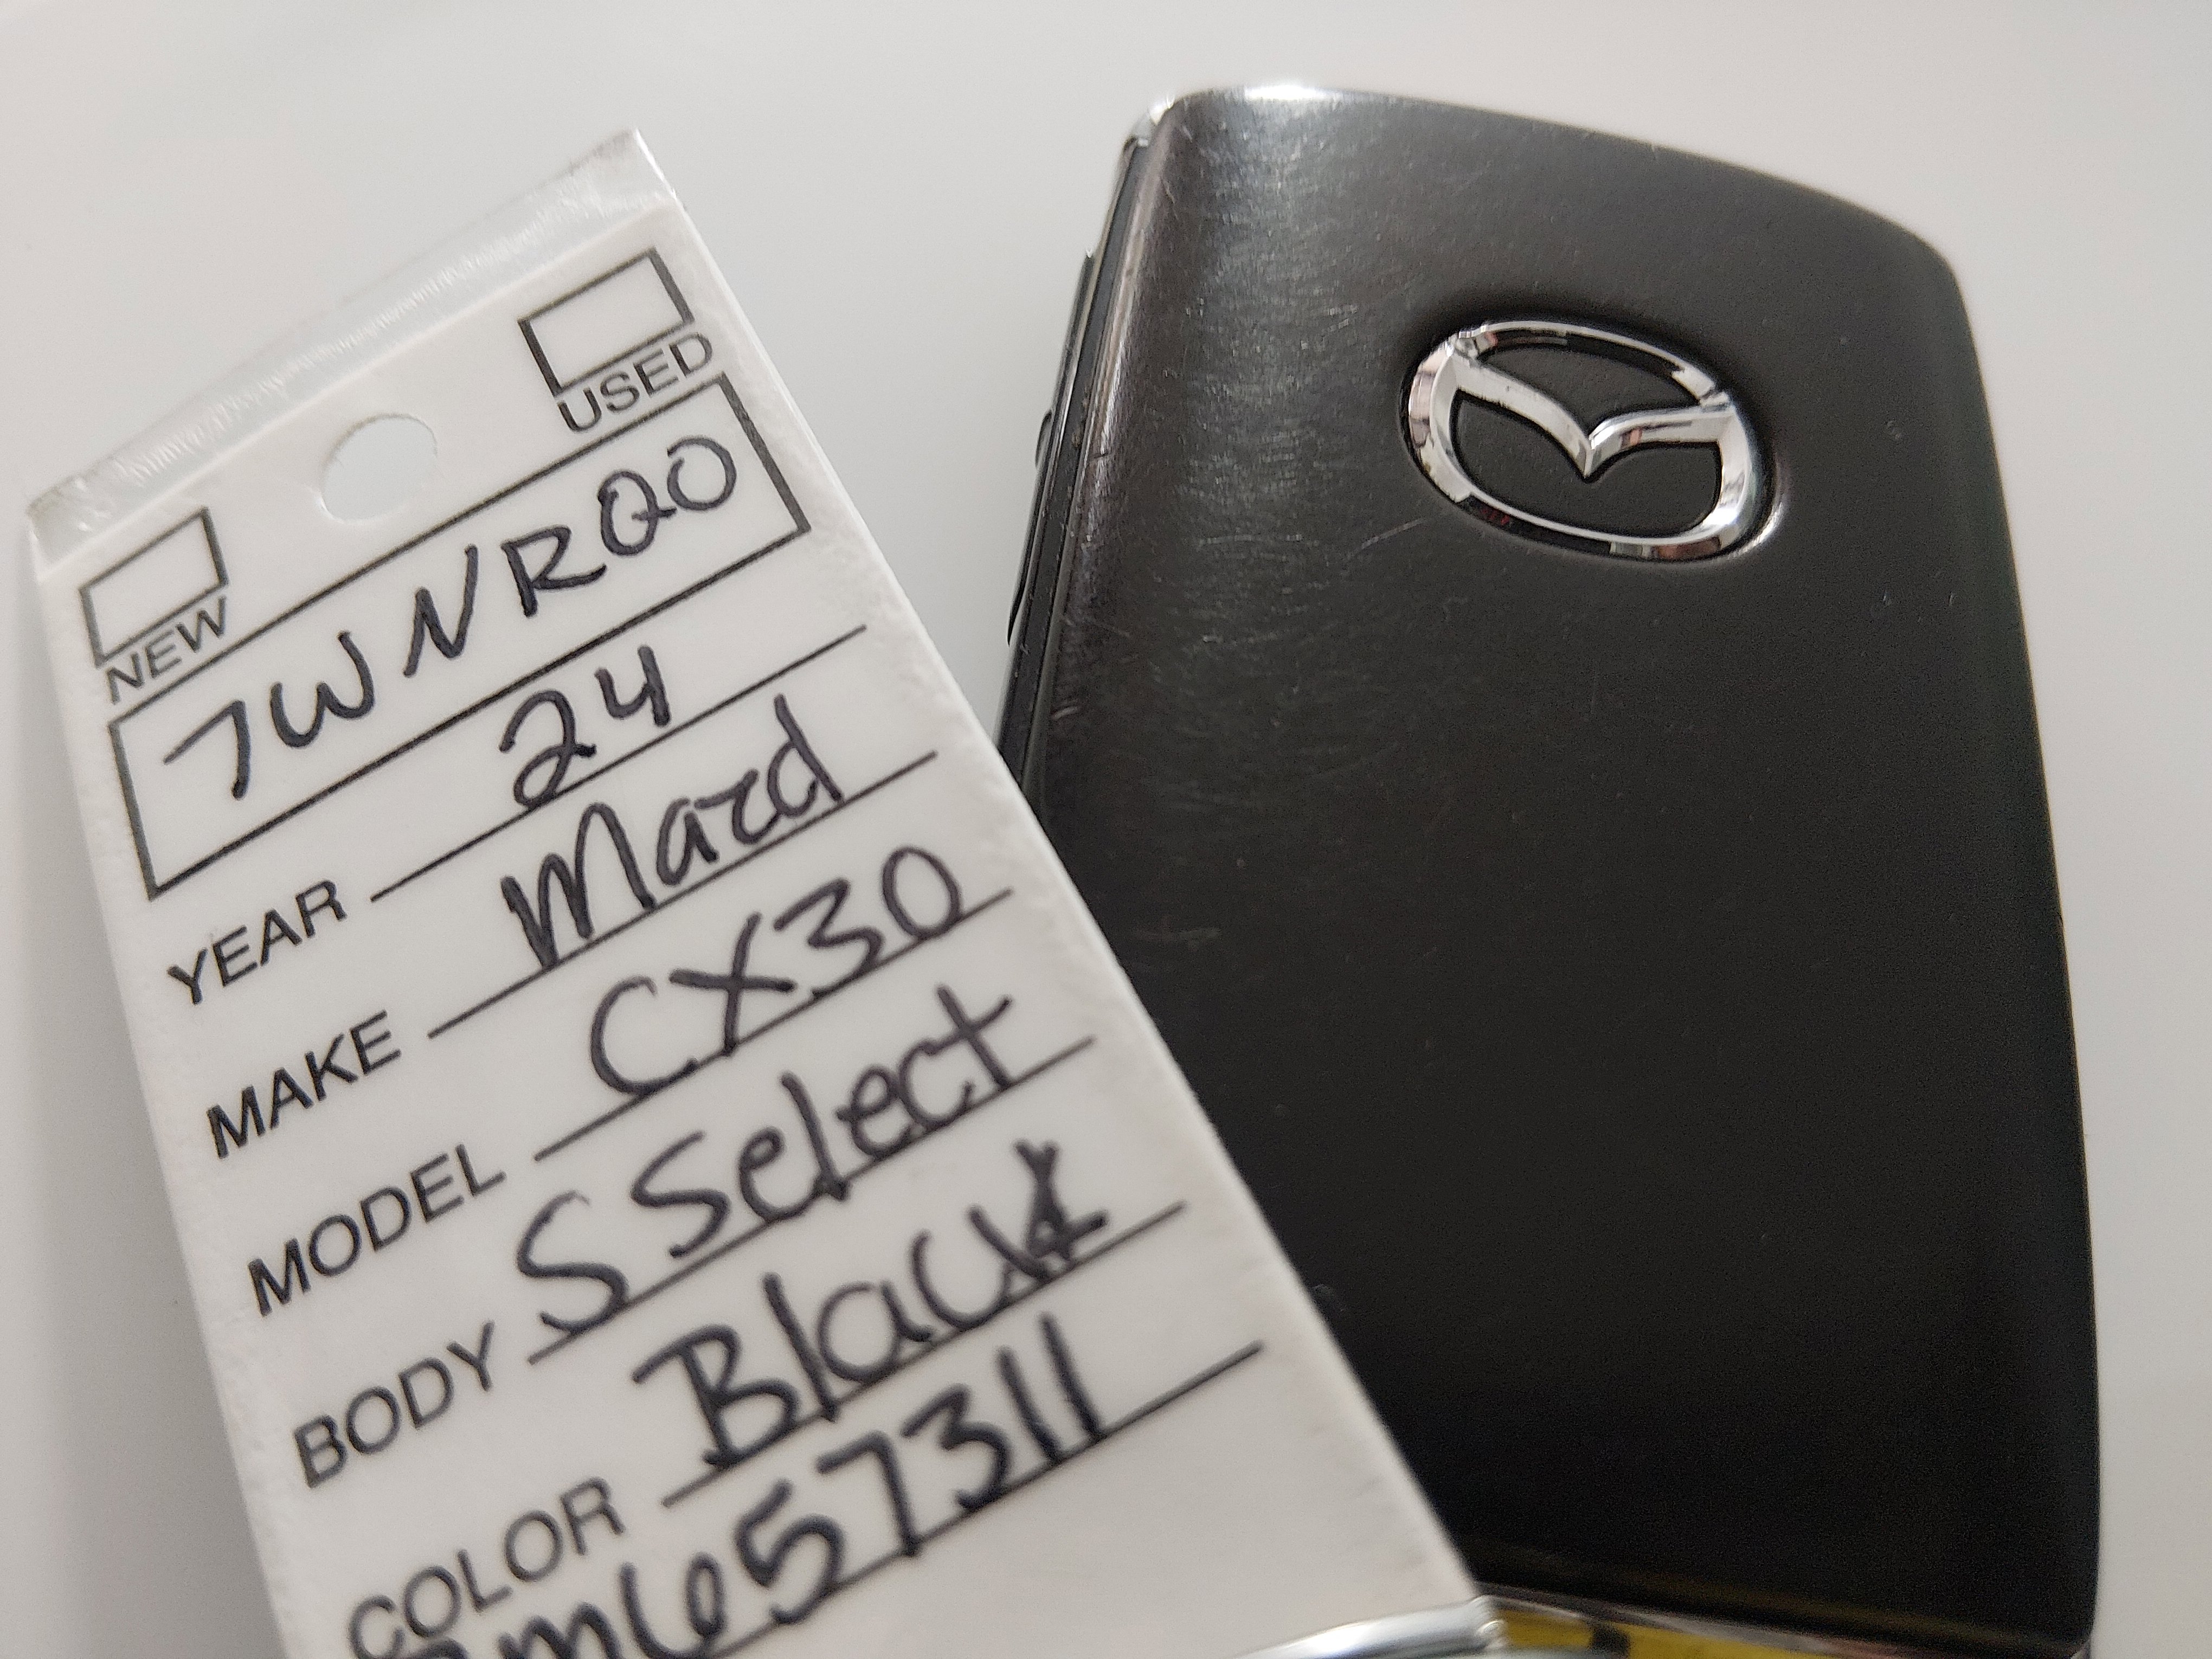 NEW USED
7WNRQ0
YEAR 24
MAKE Mazd
MODEL CX30
BODY S Select
COLOR Black
m657311